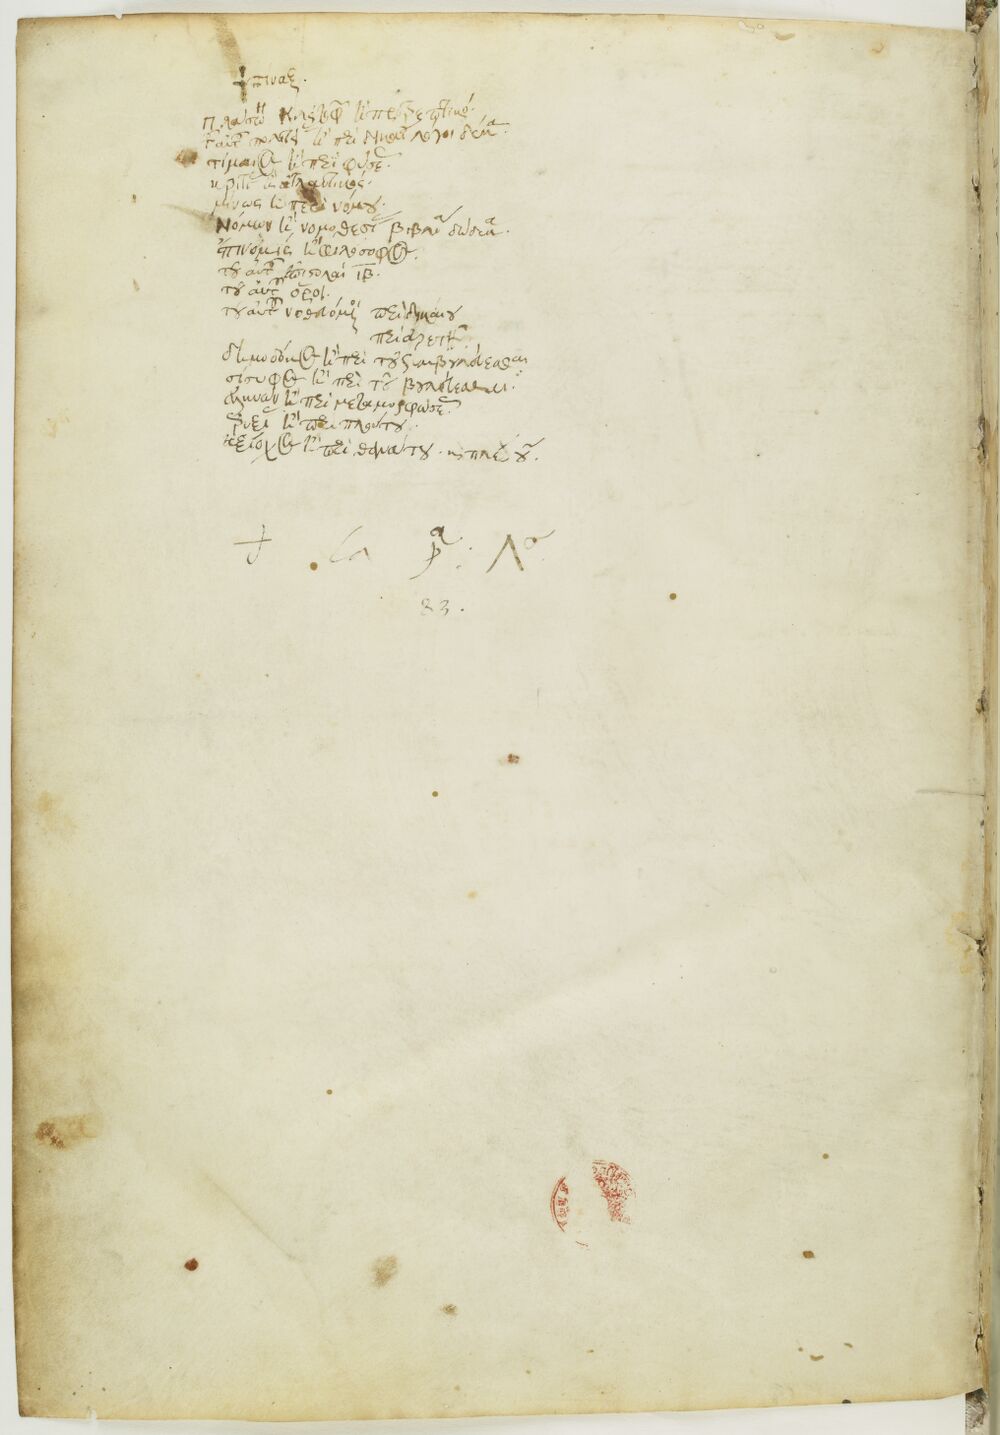 + πίναξ.
Πλάτω κλειτοφ ἢ προτρεπτικό.
τ αὐτ πολιτεῖ ἢ περὶ δικαί λόγοι δέκα.
τίμαιος ἢ περὶ φύσε.
κριτί ἢ ἀτλαντικός.
μίνως ἢ περὶ νόμου.
Νόμων ἢ νομοθεσί βιβλία δώδεκα.
ἐπινομίς ἢ φιλόσοφος.
τοῦ αὐτ ἐπιστολαὶ ΙΒ.
τοῦ αὐτ ὅροι.
τοῦ αὐτ νοθευόμε περὶ δικαίου
περὶ ἀρετ
δημόδοκος ἢ περὶ τοῦ συμβουλεύεσθαι
σίσυφος ἢ περὶ τοῦ βουλεύεσθαι.
ἀλκυὼν ἢ περὶ μεταμορφώσε.
ἐρυξί ἢ περὶ πλούτου.
ἀξίοχος ἢ περὶ θανάτου.
+ α Λο
83.